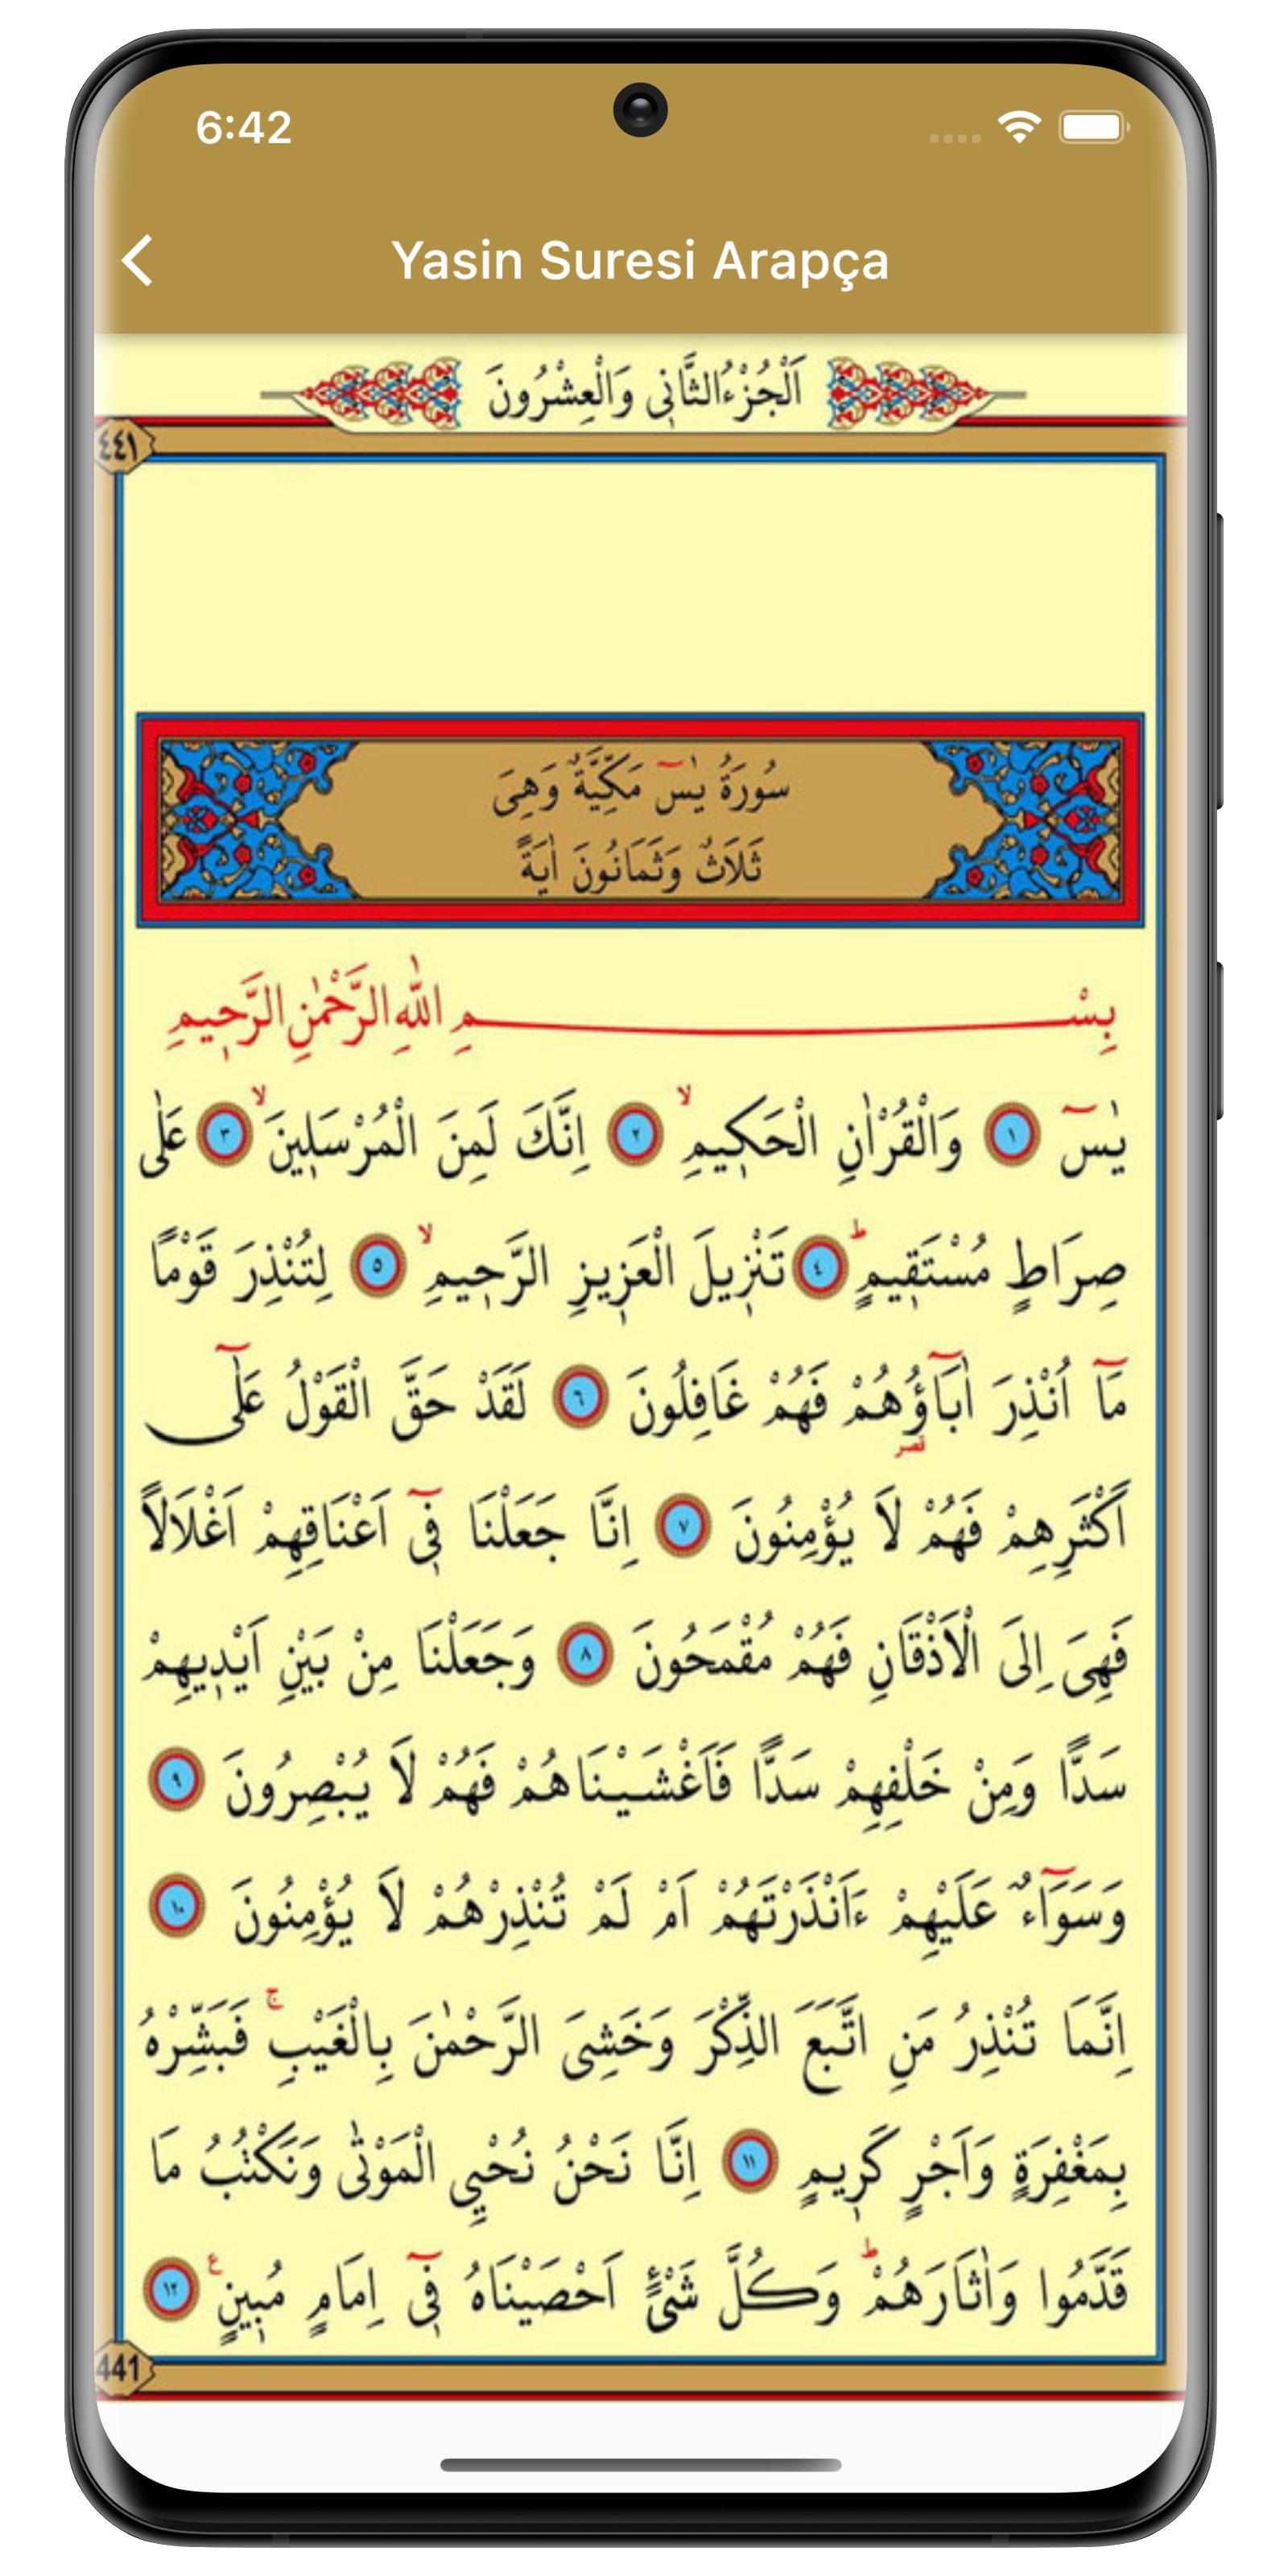 6:42
Yasin Suresi Arapça
اَلْجُزْءُ الثَّانِى وَالْعِشْرُونَ
٤٤١
سُورَةُ يٰسٓ مَكِّيَّةٌ وَهِىَ
ثَلَاثٌ وَثَمَانُونَ اٰيَةً
بِسْمِ اللّٰهِ الرَّحْمٰنِ الرَّحِيمِ
يٰسٓ ١ وَالْقُرْاٰنِ الْحَكِيمِ ۙ ٢ اِنَّكَ لَمِنَ الْمُرْسَلِينَ ۙ ٣ عَلٰى
صِرَاطٍ مُسْتَقِيمٍ ۜ ٤ تَنْزِيلَ الْعَزِيزِ الرَّحِيمِ ۙ ٥ لِتُنْذِرَ قَوْمًا
مَٓا اُنْذِرَ اٰبَٓاؤُ۬هُمْ فَهُمْ غَافِلُونَ ٦ لَقَدْ حَقَّ الْقَوْلُ عَلٰٓى
قصر
اَكْثَرِهِمْ فَهُمْ لَا يُؤْمِنُونَ ٧ اِنَّا جَعَلْنَا فِٓى اَعْنَاقِهِمْ اَغْلَالًا
فَهِىَ اِلَى الْاَذْقَانِ فَهُمْ مُقْمَحُونَ ٨ وَجَعَلْنَا مِنْ بَيْنِ اَيْدِيهِمْ
سَدًّا وَمِنْ خَلْفِهِمْ سَدًّا فَاَغْشَيْنَاهُمْ فَهُمْ لَا يُبْصِرُونَ ٩
وَسَوَٓاءٌ عَلَيْهِمْ ءَاَنْذَرْتَهُمْ اَمْ لَمْ تُنْذِرْهُمْ لَا يُؤْمِنُونَ ١٠
اِنَّمَا تُنْذِرُ مَنِ اتَّبَعَ الذِّكْرَ وَخَشِىَ الرَّحْمٰنَ بِالْغَيْبِ ۚ فَبَشِّرْهُ
بِمَغْفِرَةٍ وَاَجْرٍ كَرِيمٍ ١١ اِنَّا نَحْنُ نُحْيِى الْمَوْتٰى وَنَكْتُبُ مَا
قَدَّمُوا وَاٰثَارَهُمْ ۜ وَكُلَّ شَىْءٍ اَحْصَيْنَاهُ فِٓى اِمَامٍ مُبِينٍ ع ١٢
441